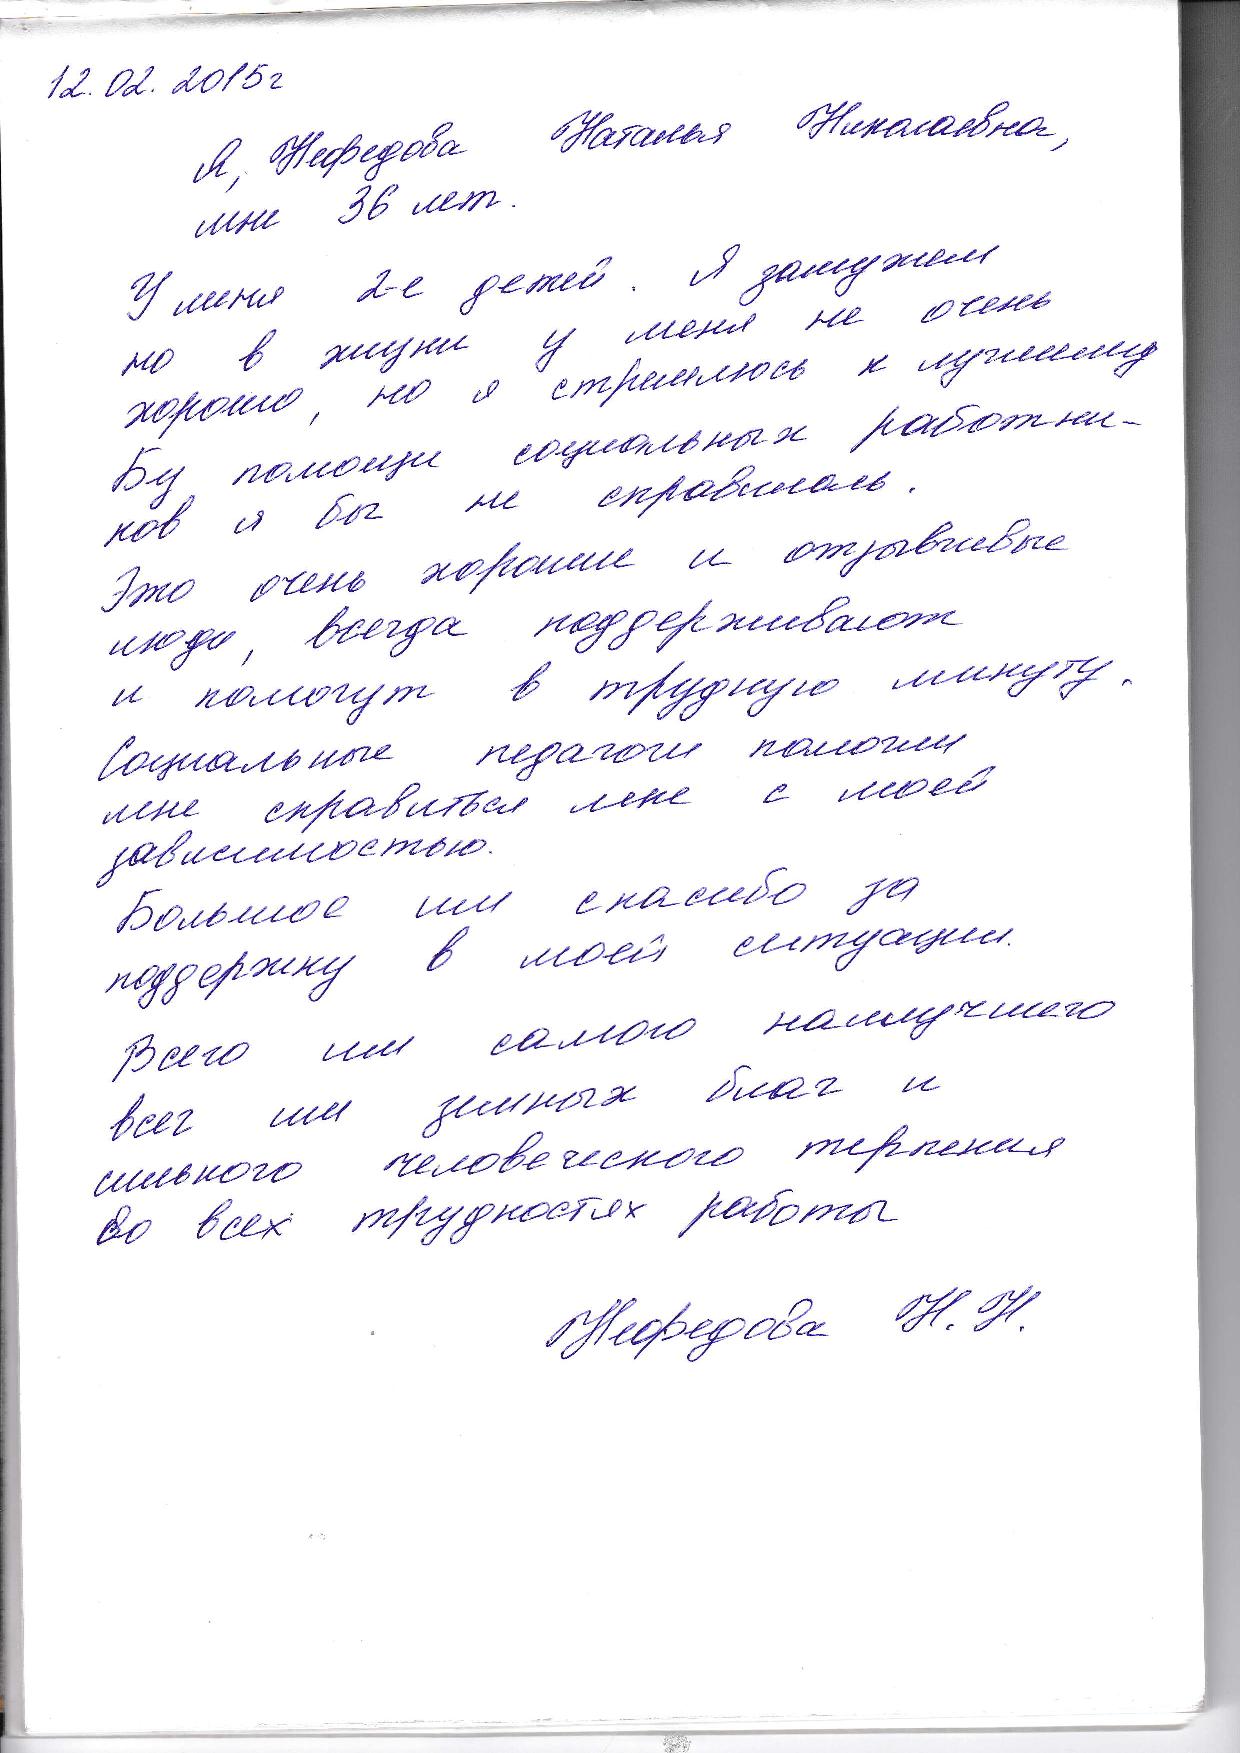 12.02.2015г
Я, Нефедова Наталья Николаевна,
мне 36 лет.
У меня 2-е детей. Я замужем
но в жизни у меня не очень
хорошо, но я стремлюсь к лучшему
Бу помощи социальных работни-
ков я бы не справилась.
Это очень хорошие и отзывчивые
люди, всегда поддерживают
и помогут в трудную минуту.
Социальные педагоги помогли
мне справиться мне с моей
зависимостью.
Большое им спасибо за
поддержку в моей ситуации.
Всего им самого наилучшего
всег им земных благ и
сильного человеческого терпения
во всех трудностях работы
Нефедова Н.Н.